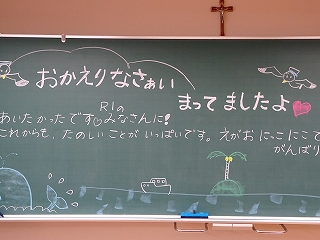 おかえりなさぁい
まってましたよ
R1の
あいたかったです♡みなさんに!
これからも、たのしいことがいっぱいです。えがおにっこにこで
がんばり